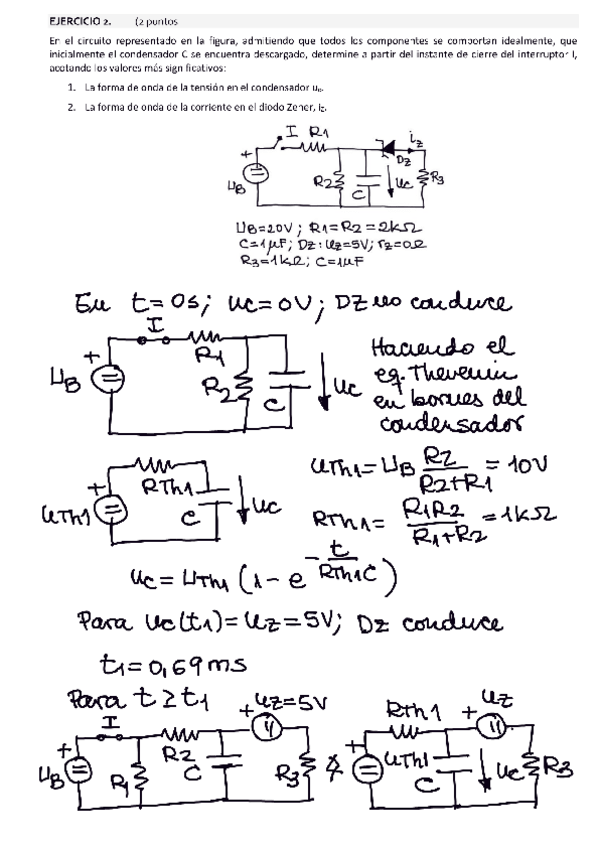 EJERCICIO 2. (2 puntos
En el circuito representado en la figura, admitiendo que todos los componentes se comportan idealmente, que
inicialmente el condensador C se encuentra descargado, determine a partir del instante de cierre del interruptor I,
acotando los valores más significativos:
1. La forma de onda de la tensión en el condensador uc.
2. La forma de onda de la corriente en el diodo Zener, iz.
I R1
+ UB R2 C uc Dz iz R3
UB=20V ; R1=R2=2kΩ
C=1µF; Dz: Uz=5V; rz=0Ω
R3=1kΩ; C=1µF
En t=0s; uc=0V; Dz no conduce
I
+ UB R1 R2 C uc
Haciendo el
eq. Thevenin
en bornes del
condensador
+ UTh1 RTh1 C uc
UTh1=UB R2/(R2+R1) = 10V
RTh1= R1R2/(R1+R2) = 1kΩ
uc = UTh1 (1-e^(-t/(RTh1C)))
Para uc(t1)=Uz=5V; Dz conduce
t1=0,69ms
Para t≥t1
I + Uz=5V
+ UB R1 R2 C R3
Rth1 + Uz
+ UTh1 C uc R3